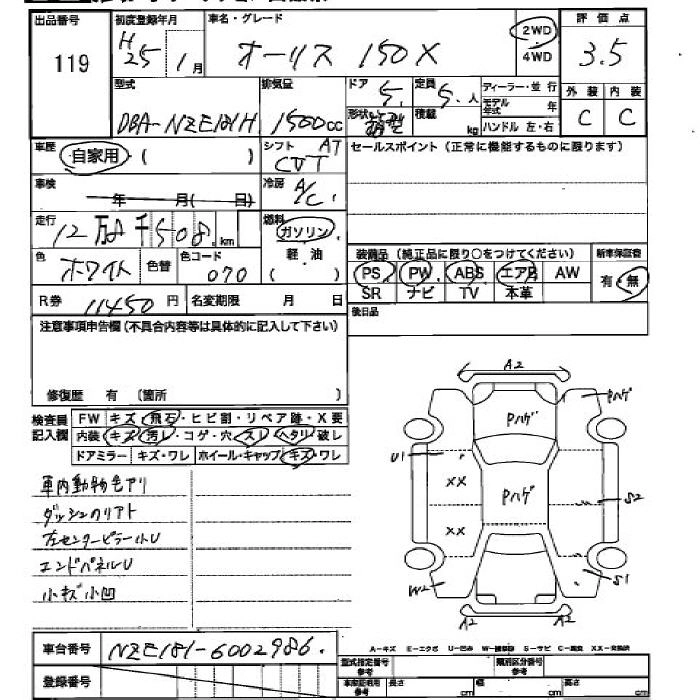 出品番号 初度登録年月 車名・グレード 評価点
119 H25年1月 オーリス 150X 2WD 4WD 3.5
型式 排気量 ドア 定員 ディーラー・並行 外装 内装
DBA-NZE181H 1500cc 5. 5.人 モデル年式 年 C C
形状 箱型 積載 kg ハンドル 左・右
車歴 自家用 ( ) シフト AT CVT セールスポイント(正常に機能するものに限ります)
車検 年 月(日) 冷房 A/C
走行 12万8千508km 燃料 ガソリン 軽油 ( )
色 ホワイト 色替 色コード 070
装備品(純正品に限り○をつけてください) 新車保証書
PS PW ABS エアB AW 有・無
SR ナビ TV 本革
R券 11450円 名変期限 月 日 後日品
注意事項申告欄(不具合内容等は具体的に記入して下さい)
修復歴 有 〔箇所 〕
検査員記入欄 FW キズ・飛石・ヒビ割・リペア跡・X要
内装 キズ・汚レ・コゲ・穴・スレ・ヘタリ・破レ
ドアミラー キズ・ワレ ホイール・キャップ キズ・ワレ
車内動物毛アリ
ダッシュのリアト
左センターピラー小U
エンドパネルU
小キズ小凹
A2
Pハゲ
Pハゲ
U1
XX
Pハゲ
XX
S2
W2
S1
A2 A2
車台番号 NZE181-6002986.
A-キズ E-エクボ U-凹み W-補修跡 S-サビ C-腐食 XX-交換済
登録番号
型式指定番号 参考 類別区分番号 参考
車庫証明用 参考 長さ cm 幅 cm 高さ cm